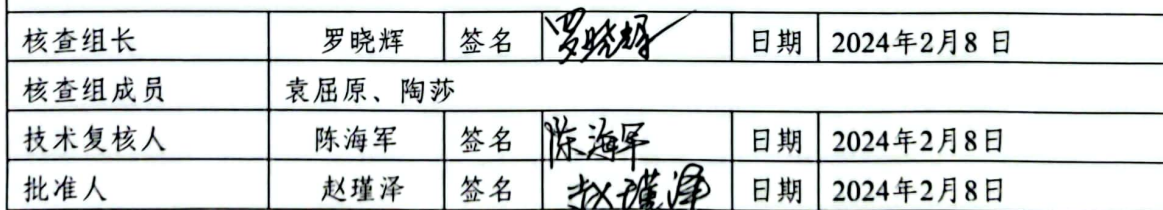 核查组长 罗晓辉 签名 罗晓辉 日期 2024年2月8 日
核查组成员 袁屈原、陶莎
技术复核人 陈海军 签名 陈海军 日期 2024年2月8日
批准人 赵瑾泽 签名 赵瑾泽 日期 2024年2月8日